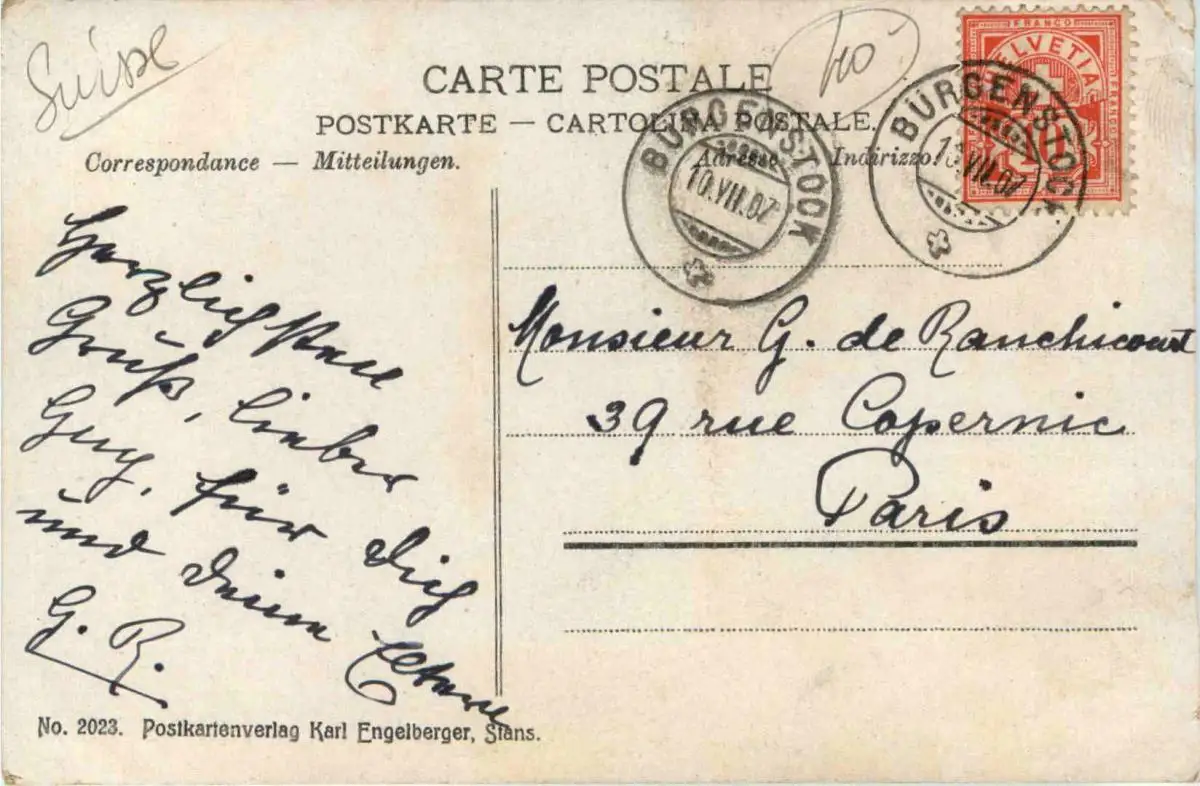 Suisse
40
FRANCO
HELVETIA
10
CARTE POSTALE
POSTKARTE — CARTOLINA POSTALE.
Correspondance — Mitteilungen.
Adresse Indirizzo.
BÜRGENSTOCK
10.VII.07
BÜRGENSTOCK
10.VII.07
Herzlichsten
Gruß, lieber
Guy, für Dich
und Deine Eltern
G. R.
Monsieur G. de Ranchicourt
39 rue Copernic
Paris
No. 2023. Postkartenverlag Karl Engelberger, Stans.